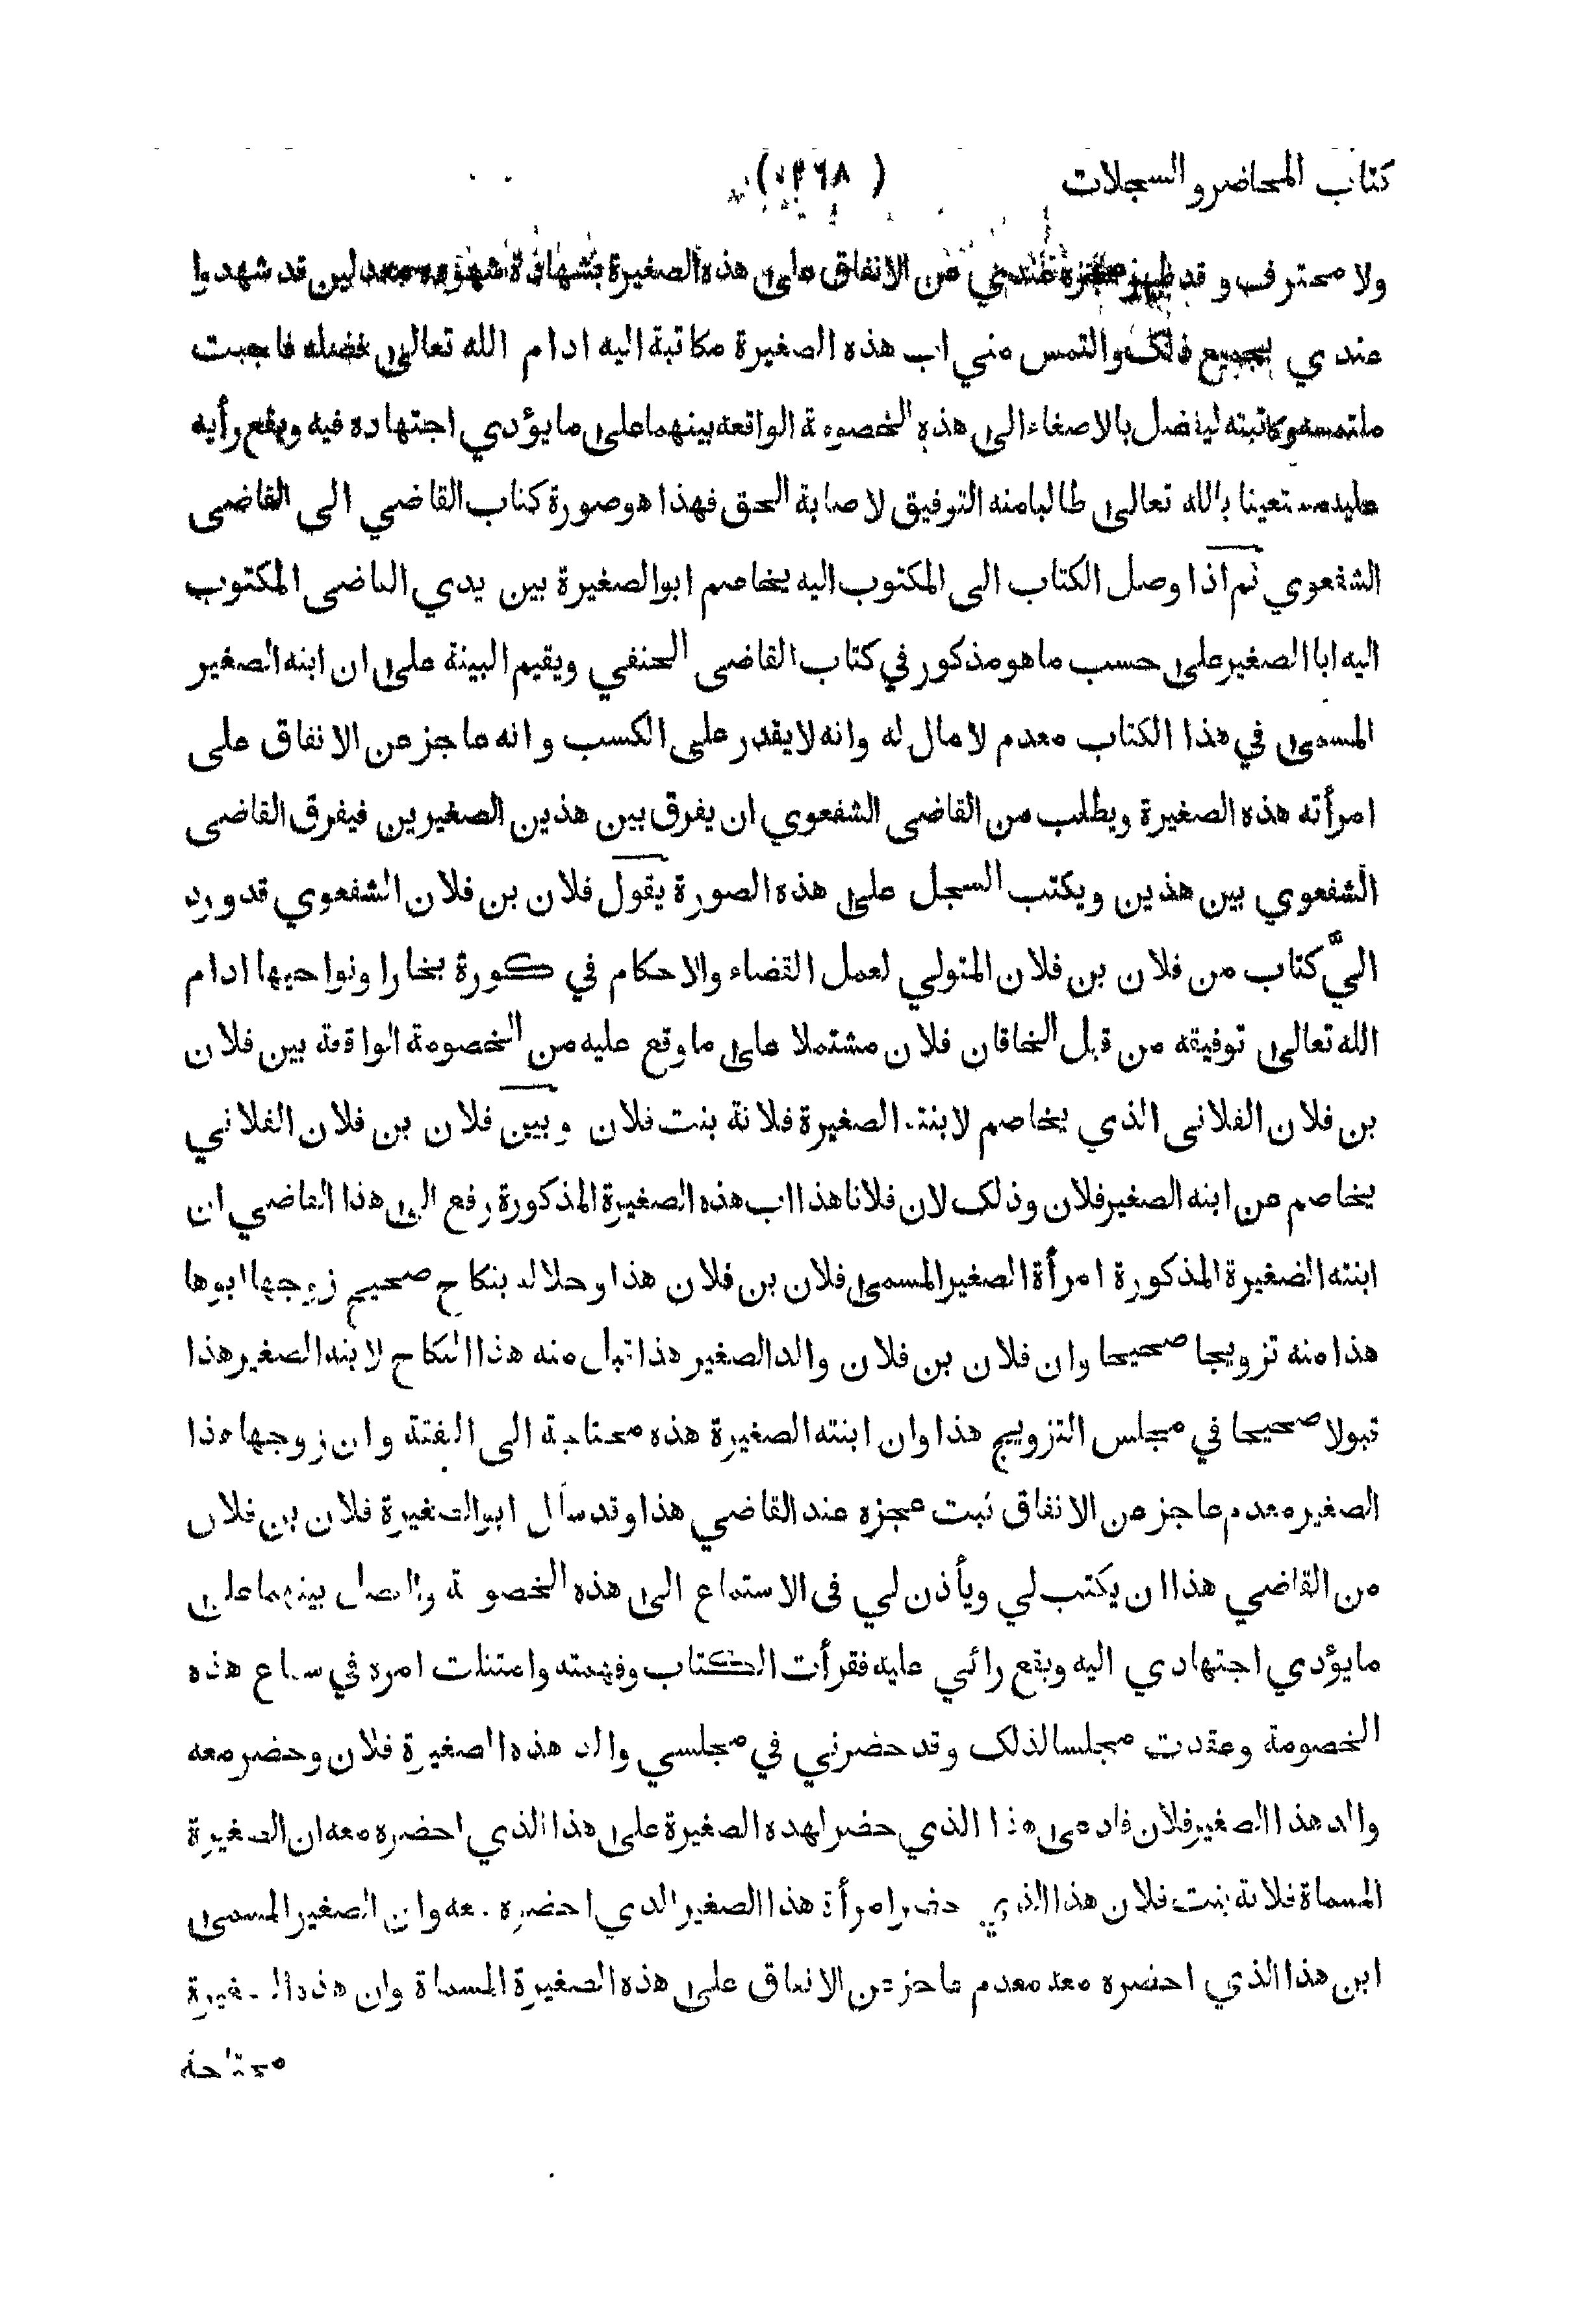 كتاب المحاضر والسجلات
ولا محترف وقد ظهر عجزه عندي من الانفاق على هذه الصغيرة بشهادة شهود معدلين قد شهدوا
عندي بجميع ذلك والتمس مني اب هذه الصغيرة مكاتبة اليه ادام الله تعالى فضله فاجبت
ملتمسه وكاتبته ليفضل بالاصغاء الى هذه الخصومة الواقعه بينهما على ما يؤدي اجتهاده فيه ويقع رأيه
عليه مستعينا بالله تعالى طالبا منه التوفيق لاصابة الحق فهذا هو صورة كتاب القاضي الى القاضى
الشفعوي ثم اذا وصل الكتاب الى المكتوب اليه يخاصم ابو الصغيرة بين يدي القاضى المكتوب
اليه ابا الصغير على حسب ما هو مذكور في كتاب القاضى الحنفي ويقيم البينة على ان ابنه الصغير
المسمى في هذا الكتاب معدم لا مال له وانه لا يقدر على الكسب وانه عاجز عن الانفاق على
امرأته هذه الصغيرة ويطلب من القاضى الشفعوي ان يفرق بين هذين الصغيرين فيفرق القاضى
الشفعوي بين هذين ويكتب السجل على هذه الصورة يقول فلان بن فلان الشفعوي قد ورد
اليَّ كتاب من فلان بن فلان المتولي لعمل القضاء والاحكام في كورة بخارا ونواحيها ادام
الله تعالى توفيقه من قبل الخاقان فلان مشتملا على ما وقع عليه من الخصومة الواقعة بين فلان
بن فلان الفلانى الذي يخاصم لابنته الصغيرة فلانة بنت فلان وبين فلان بن فلان الفلاني
يخاصم عن ابنه الصغير فلان وذلك لان فلانا هذا اب هذه الصغيرة المذكورة رفع الى هذا القاضي ان
ابنته الصغيرة المذكورة امرأة الصغير المسمى فلان بن فلان هذا وحلاله بنكاح صحيح زوجها ابوها
هذا منه تزويجا صحيحا وان فلان بن فلان والد الصغير هذا قبل منه هذا النكاح لابنه الصغير هذا
قبولا صحيحا في مجلس التزويج هذا وان ابنته الصغيرة هذه محتاجة الى النفقة وان زوجها هذا
الصغير معدم عاجز عن الانفاق ثبت عجزه عند القاضي هذا وقد سأل ابو الصغيرة فلان بن فلان
من القاضي هذا ان يكتب لي ويأذن لي فى الاستماع الى هذه الخصومة والفصل بينهما على
ما يؤدي اجتهادي اليه ويقع رائي عليه فقرأت الكتاب وفهمته وامتثلت امره في سماع هذه
الخصومة وعقدت مجلسا لذلك وقد حضرني في مجلسي والد هذه الصغيرة فلان وحضر معه
والد هذا الصغير فلان فادعى هذا الذي حضر لهذه الصغيرة على هذا الذي احضره معه ان الصغيرة
المسماة فلانة بنت فلان هذا الذي حضر امرأة هذا الصغير الذي احضره معه وان الصغير المسمى
ابن هذا الذي احضره معه معدم عاجز عن الانفاق على هذه الصغيرة المسماة وان هذه الصغيرة
محتاجة